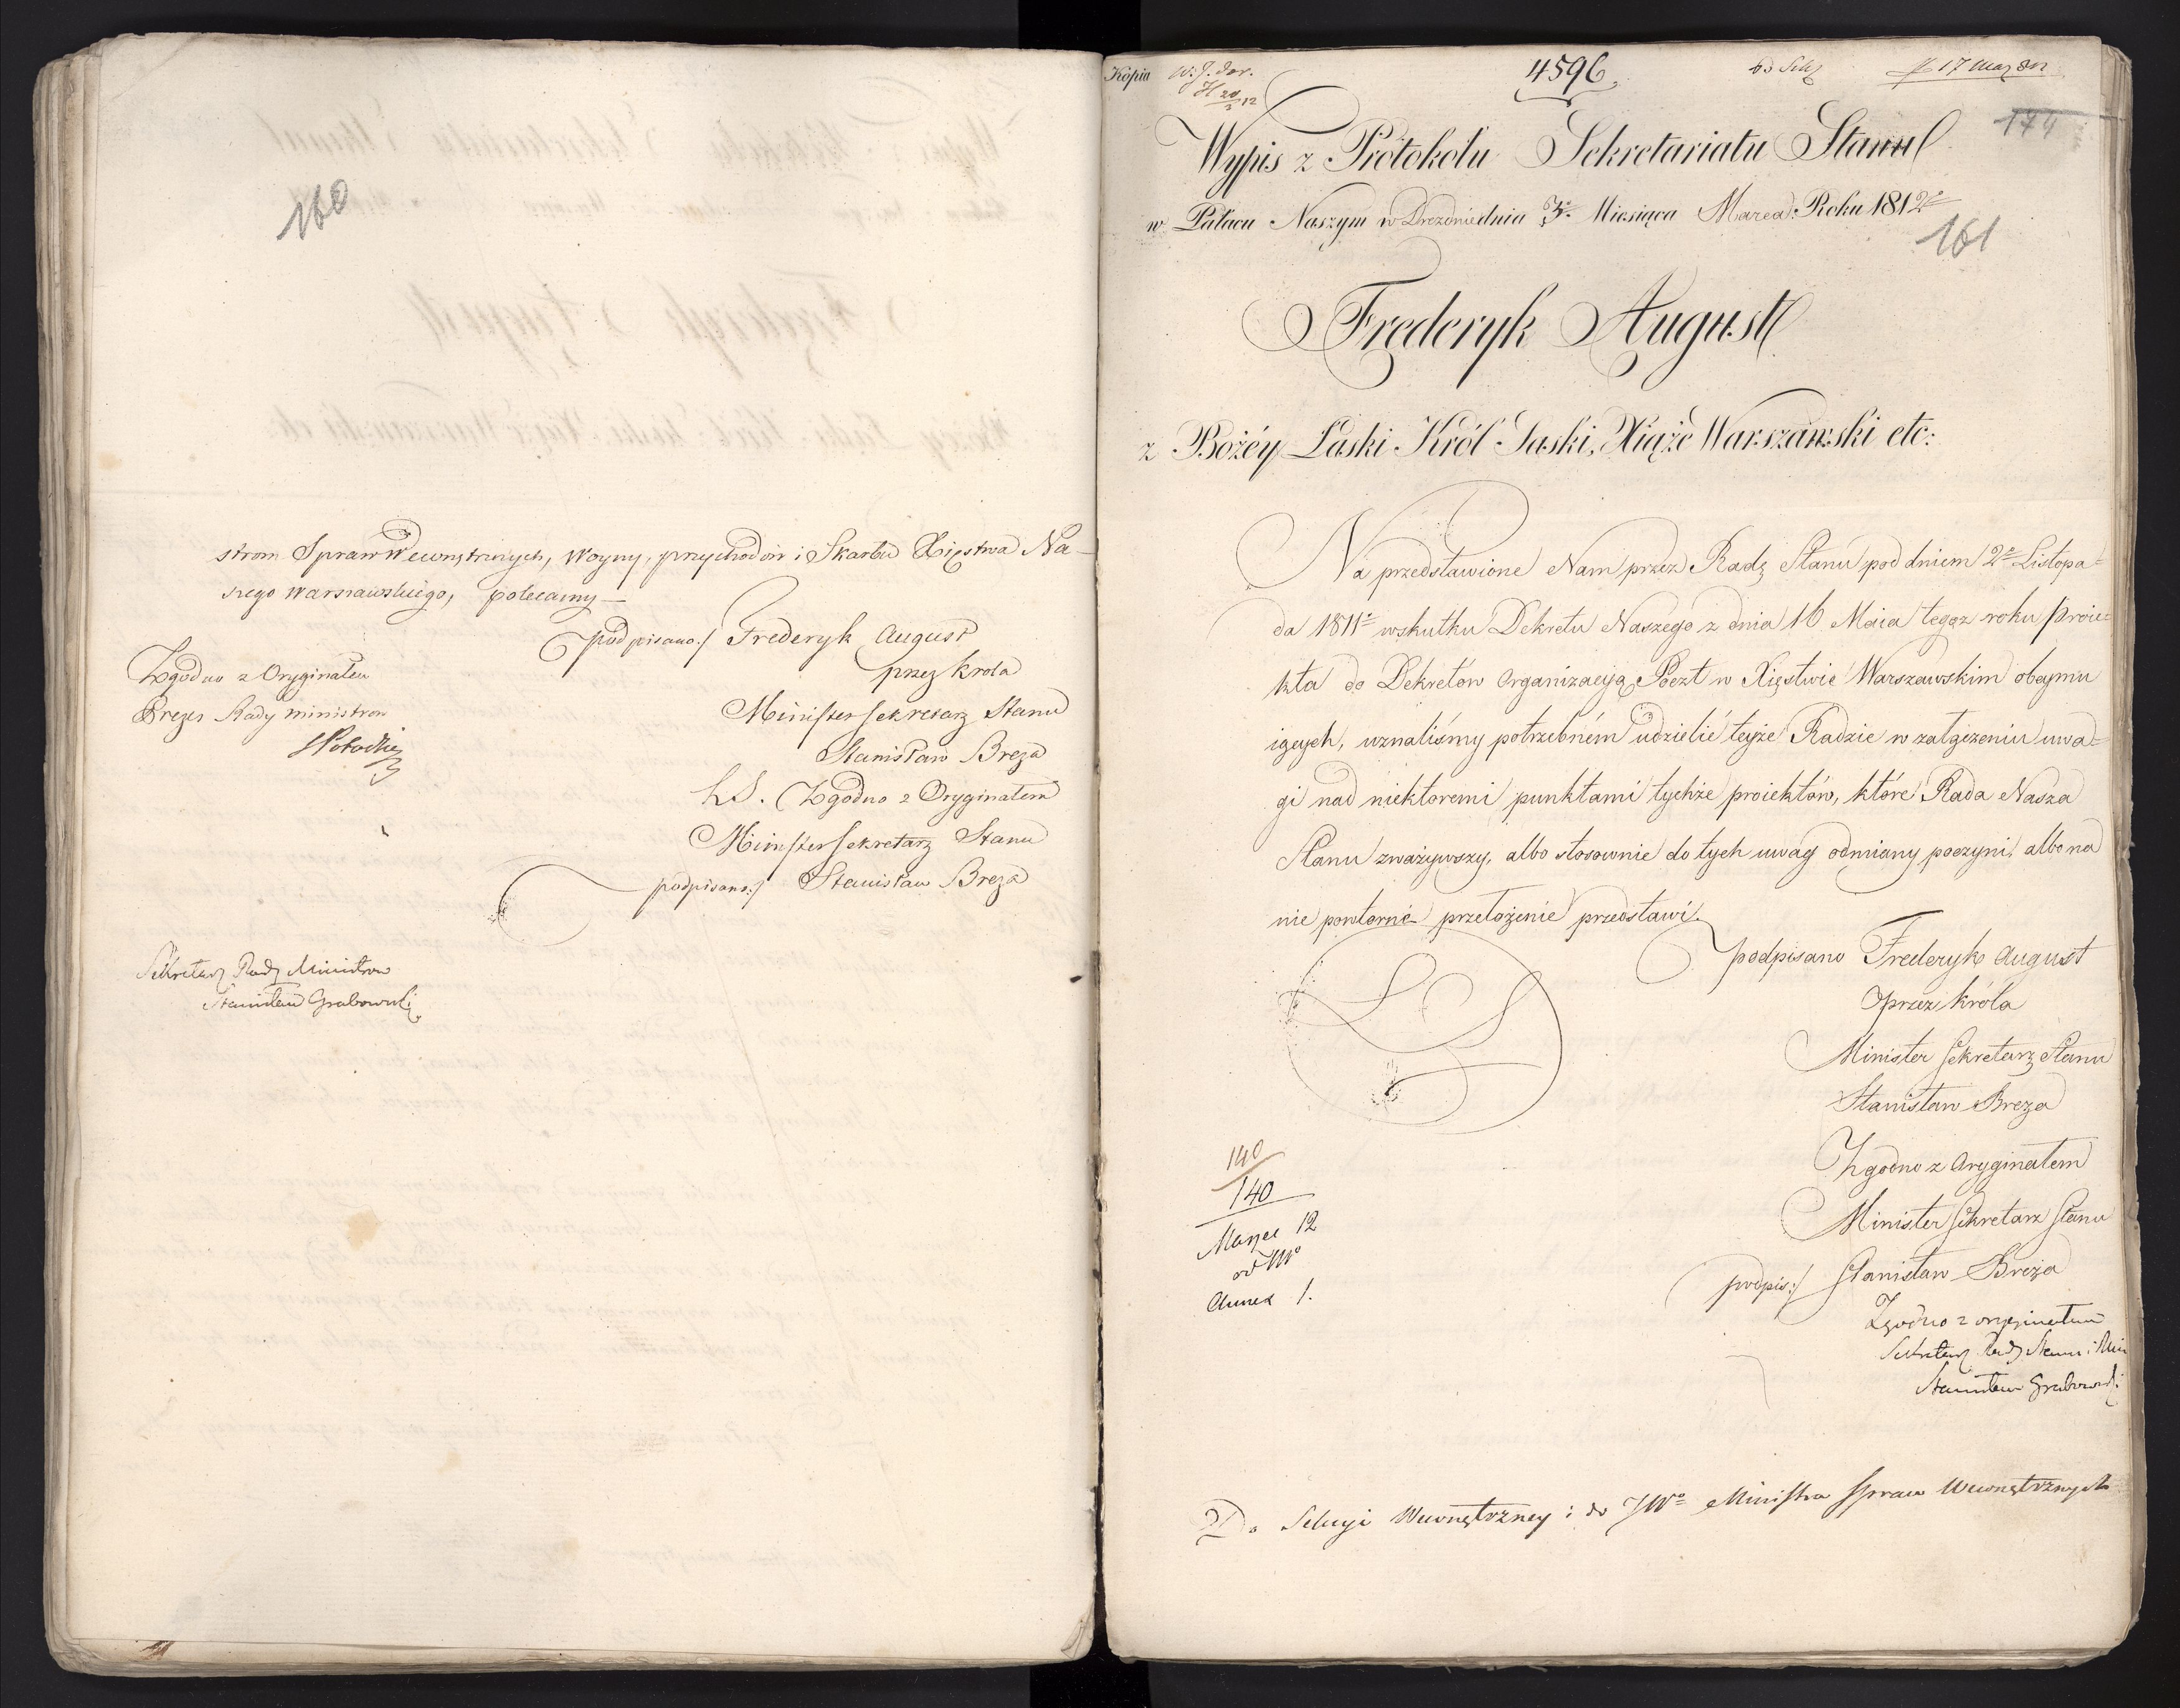 160
strom Spraw Wewnętrznych, Woyny, przychodów i Skarbu Xięstwa Na-
szego Warszawskiego, polecamy —
podpisano:/ Frederyk August
przez Krola
Minister Sekretarz Stanu
Stanisław Breza
L.S. Zgodno z Oryginałem
Minister Sekretarz Stanu
podpisano:/ Stanisław Breza
Zgodno z Oryginałem
Prezes Rady Ministrow
S Potocki
Sekretarz Rady Ministrow
Stanisław Grabowski
Kopia
4596
17
174
Wypis z Protokołu Sekretariatu Stanu
w Pałacu Naszym w Dreznie dnia 3. Miesiąca Marca Roku 1812o
161
Frederyk August
z Bożéy Łaski Król Saski, Xiąże Warszawski etc:
Na przedstawione Nam przez Radę Stanu pod dniem 2o Listopa=
da 1811o wskutku Dekretu Naszego z dnia 16 Maia tegoz roku proie=
kta do Dekretów Organizacyą Poczt w Xięstwie Warszawskim obeymu
iących, uznaliśmy potrzebném udzielić teyże Radzie w załączeniu uwa=
gi nad niektoremi punktami tychże proiektów, które Rada Nasza
Stanu zważywszy, albo stosownie do tych uwag odmiany poczyni, albo na
nie powtorné przełożenie przedstawi.
podpisano Frederyk August
przez króla
Minister Sekretarz Stanu
Stanisław Breza
LS
Zgodno z Oryginałem
Minister Sekretarz Stanu
podpis:/ Stanisław Breza
Zgodno z oryginałem
Sekretarz Rady Stanu i Min
Stanisław Grabowski
140
140
Marzec 12
od Mo
Annex 1.
Do Sekcyi Wewnętrzney i do JWo Ministra Spraw Wewnętrznych